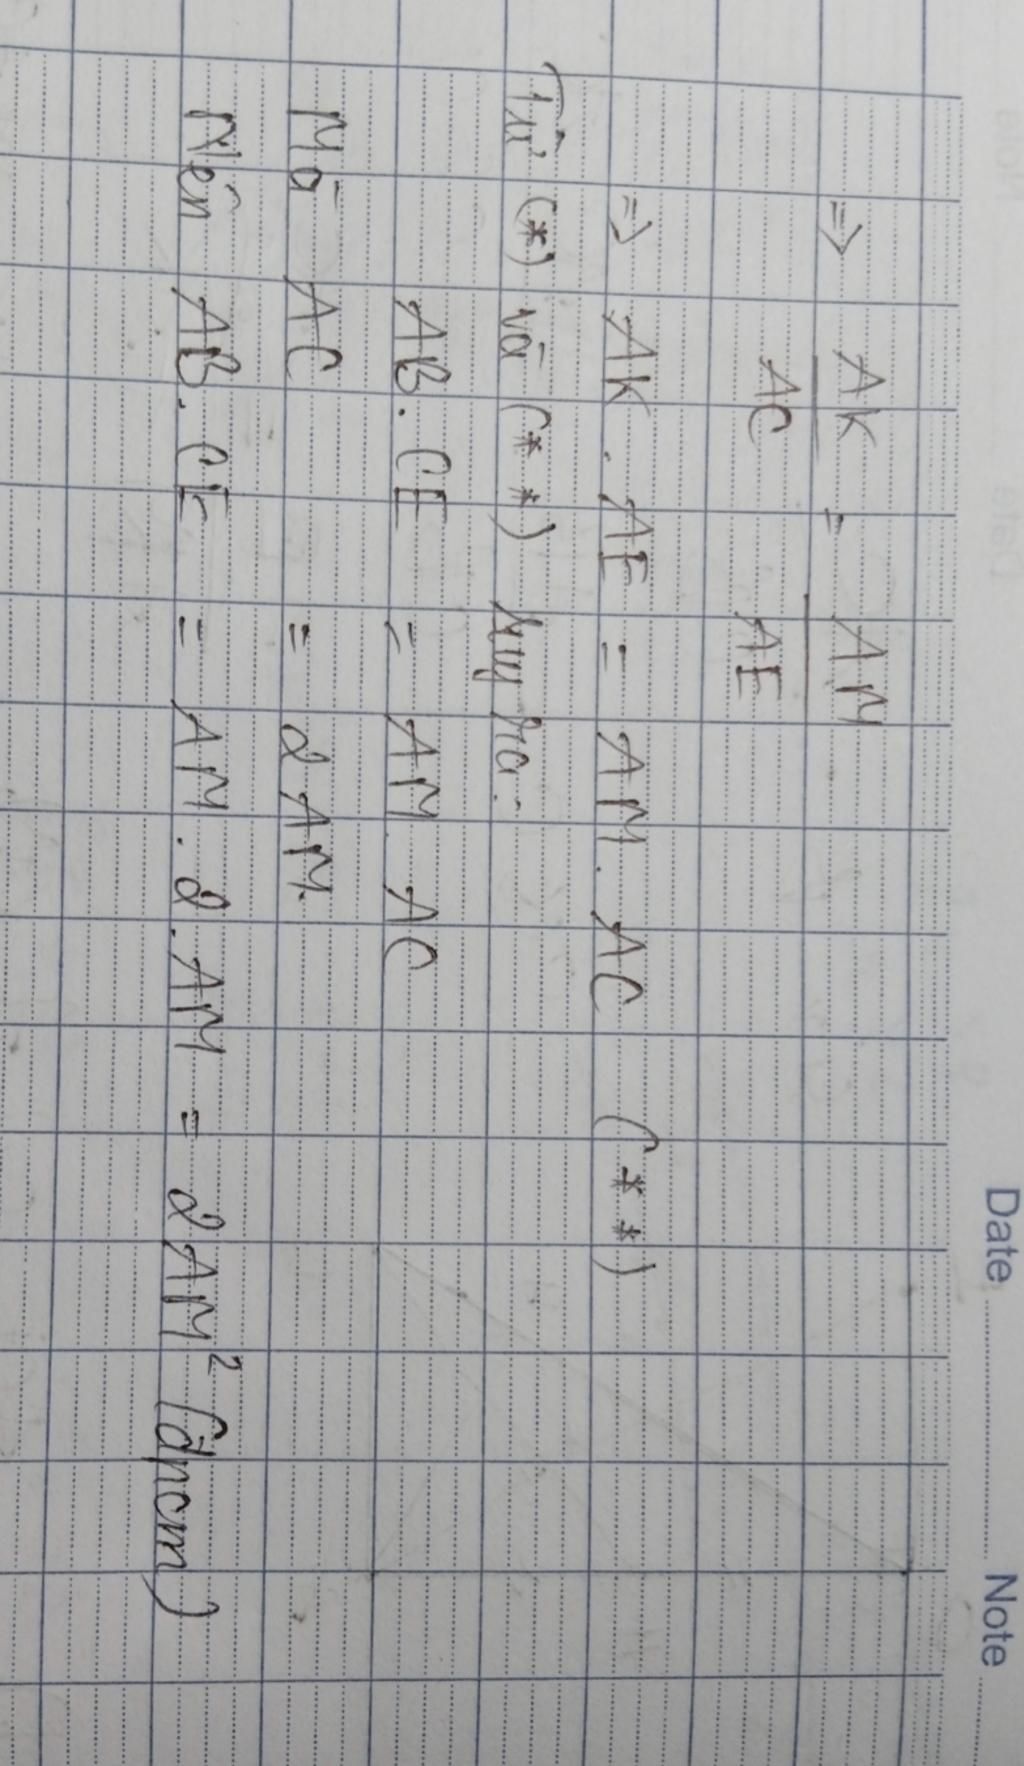 Date Note
=> AK/AC = AM/AE
=> AK . AE = AM . AC (**)
Từ (*) và (**) suy ra:
AB . CE = AM . AC
Mà AC = 2AM.
Nên AB . CE = AM . 2 . AM = 2AM² (đpcm)